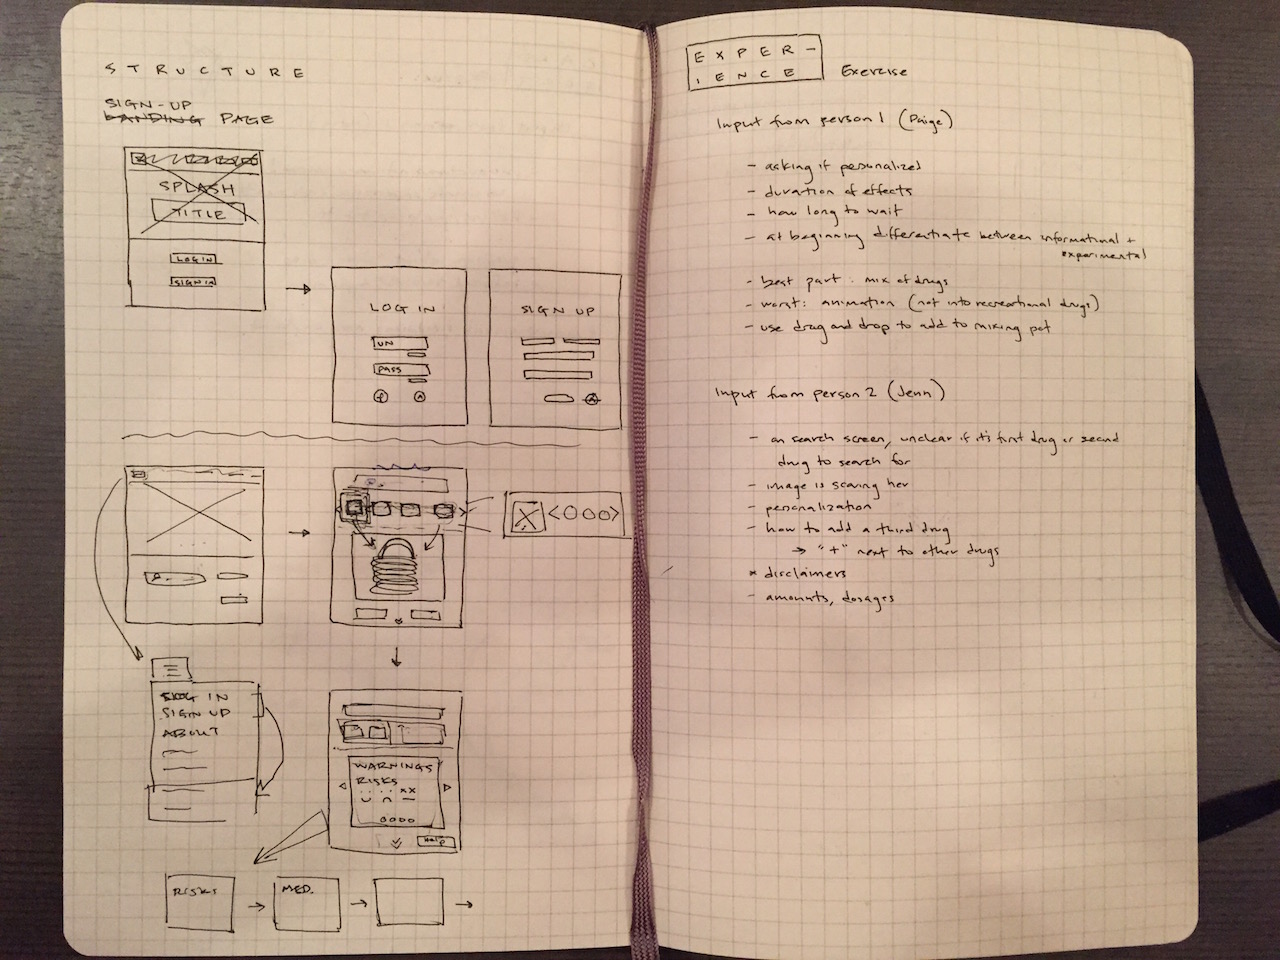 STRUCTURE
SIGN-UP
LANDING PAGE
SPLASH
TITLE
LOG IN
SIGN IN
LOG IN
UN
PASS
SIGN UP
LOG IN
SIGN UP
ABOUT
WARNINGS
RISKS
Help
RISKS
MED.
EXPER-
IENCE
Exercise
Input from person 1 (Paige)
- asking if personalized
- duration of effects
- how long to wait
- at beginning differentiate between informational +
experimental
- best part: mix of drugs
- worst: animation (not into recreational drugs)
- use drag and drop to add to mixing pot
Input from person 2 (Jenn)
- on search screen, unclear if it's first drug or second
drug to search for
- image is scaring her
- personalization
- how to add a third drug
→ "+" next to other drugs
* disclaimers
- amounts, dosages